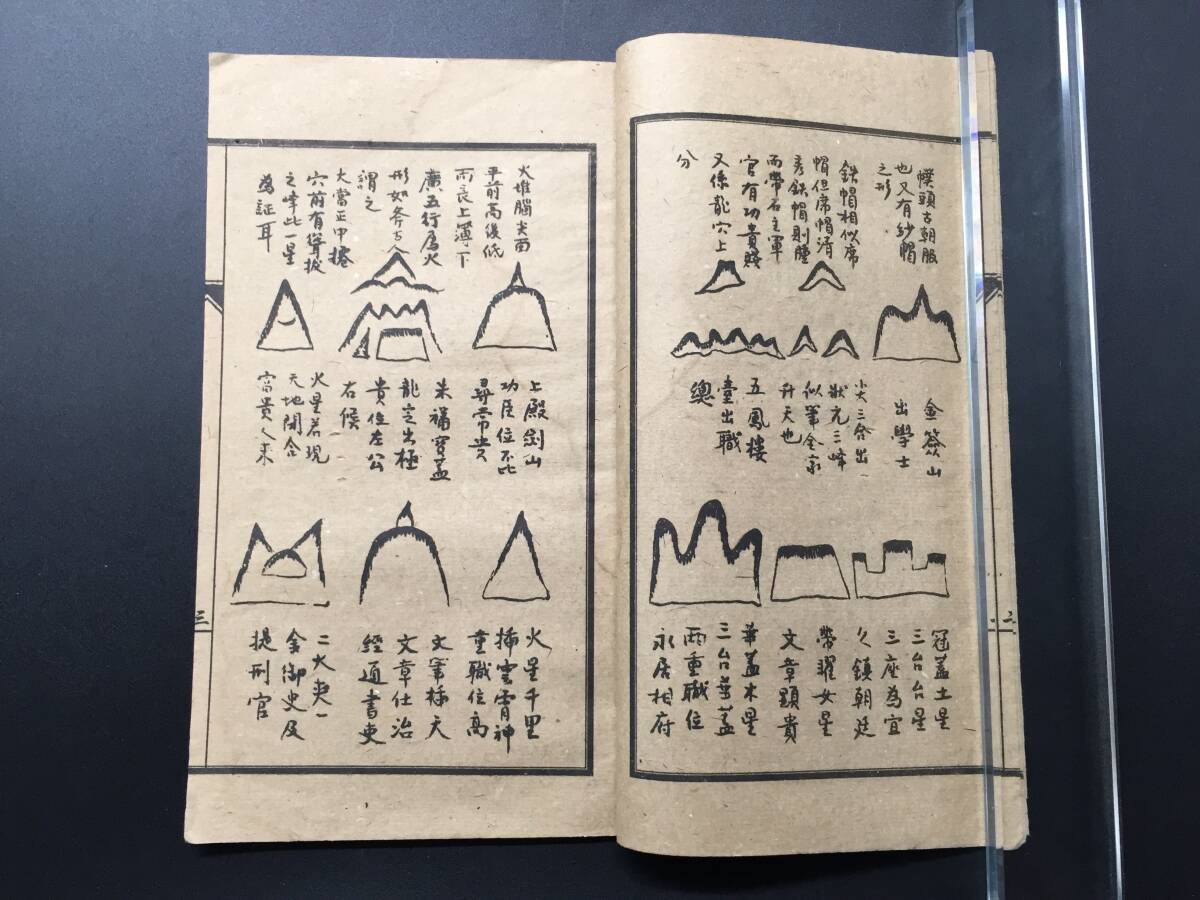 幞頭古朝服
也又有紗帽
之形
鉄帽相似席
帽但席帽清
秀鉄帽則腫
而帶石主軍
官有功貴賤
又係龍穴上
分
金簽山
出學士
小火三台出
狀元三峰
似筆金家
升天也
五鳳樓
臺出職
總
冠蓋土星
三台台星
三座為宜
久鎮朝廷
榮耀女星
文章顕貴
華蓋木星
三台華蓋
兩重職位
永居相府
二
火堆腦尖面
平前高後低
而良上薄下
廣五行属火
形如斧古人
謂之
大當正中捲
穴前有聳拔
之峰此一星
為証耳
上殿劍山
功臣位不比
尋常貴
朱福寶蓋
龍定出極
貴位左公
右候
火星若現
天地開合
富貴人来
火星千里
插雲霄神
童職位高
文筆插天
文章仕治
經通書吏
二火夾一
金御史及
提刑官
三